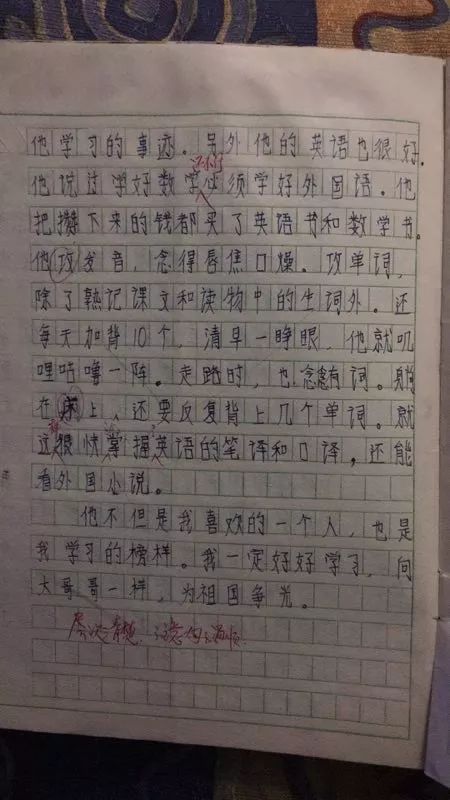 他学习的事迹。另外他的英语也很好。
他说过学好数学必须学好外国语。他
把攒下来的钱都买了英语书和数学书。
他攻发音，念得唇焦口燥。攻单词，
除了熟记课文和读物中的生词外。还
每天加背10个，清早一睁眼，他就叽
哩咕噜一阵。走路时，也念念有词。躺
在床上，还要反复背上几个单词。就
这很快掌握英语的笔译和口译，还能
看外国小说。
他不但是我喜欢的一个人，也是
我学习的榜样。我一定好好学习，向
大哥哥一样，为祖国争光。
层次清楚，注意句子通顺。